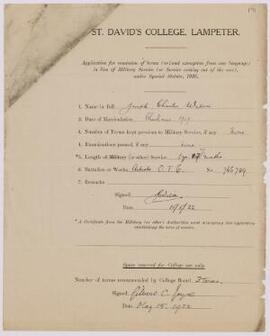 ST. DAVID'S COLLEGE, LAMPETER.
Application for remission of terms (or/and exemption from any language)
in lieu of Military Service (or Service coming out of the war),
under Special Statute, 1920.
1. Name in full Joseph Charles
2. Date of Matriculation 1919
3. Number of Terms kept previous to Military Service, if any None
4. Examinations passed, if any none
*5. Length of Military (or other) Service
6. Battalion or Works Artists O.T.C. No.
7. Remarks
Signed
Date
*A Certificate from the Military (or other) Authorities must accompany this application
establishing the term of service.
Space reserved for College use only.
Number of terms recommended by College Board, 3 terms
Signed, Gilbert C. Joyce
Date May 15, 1922